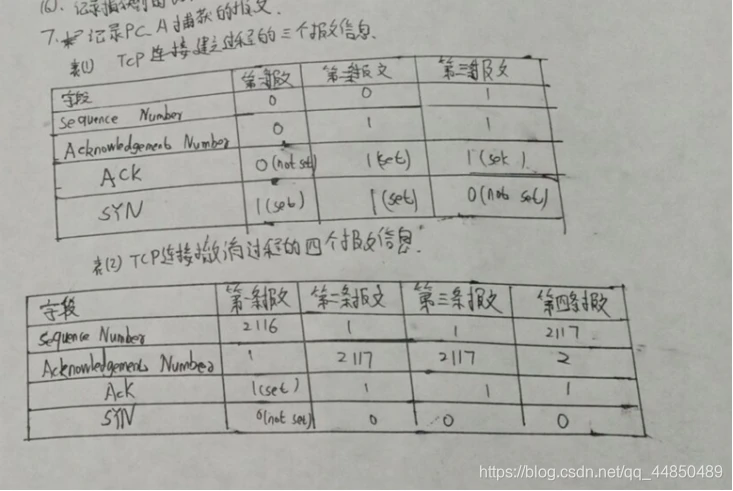 (6). 记录捕获的报文.
7. 记录PC_A捕获的报文.
表(1) TCP连接建立过程的三个报文信息.
字段 第一报文 第二报文 第三报文
Sequence Number 0 0 1
Acknowledgement Number 0 1 1
ACK 0(not set) 1(set) 1(set)
SYN 1(set) 1(set) 0(not set)
表(2) TCP连接撤消过程的四个报文信息.
字段 第一条报文 第二条报文 第三条报文 第四条报文
Sequence Number 2116 1 1 2117
Acknowledgement Number 1 2117 2117 2
Ack 1(set) 1 1 1
SYN 0(not set) 0 0 0
https://blog.csdn.net/qq_44850489